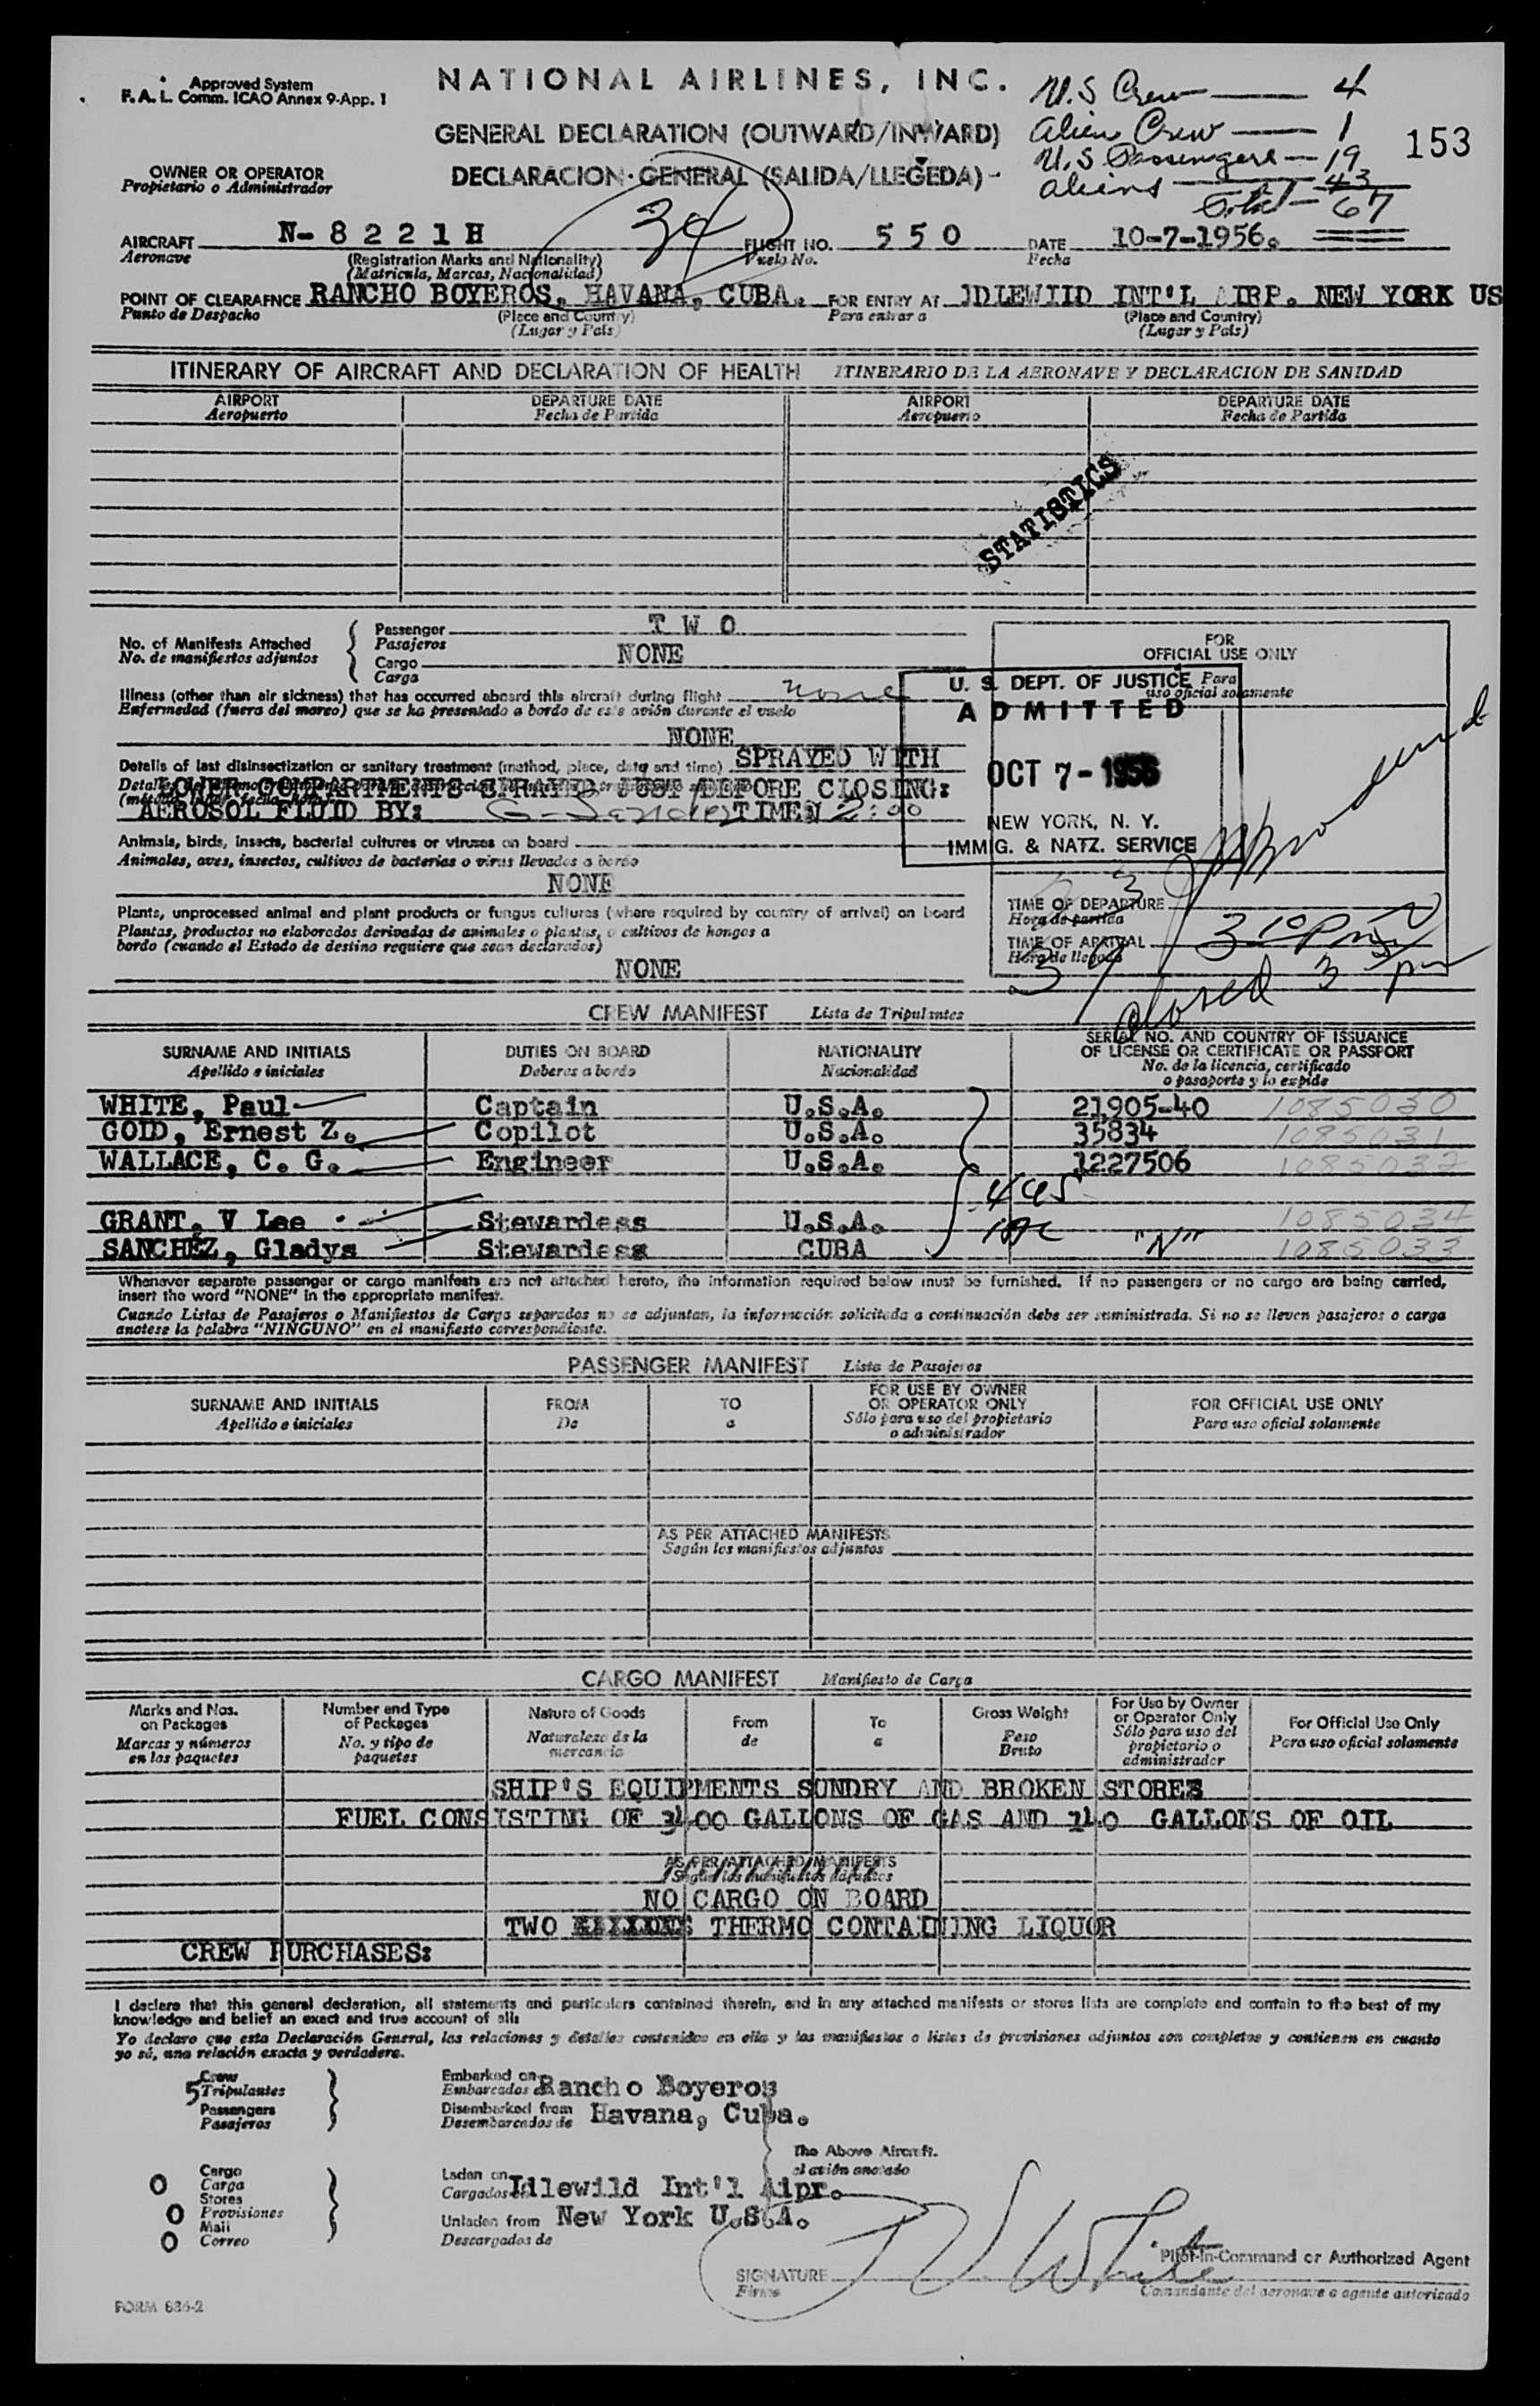 Approved System
F. A. L. Comm. ICAO Annex 9-App. 1
NATIONAL AIRLINES, INC.
GENERAL DECLARATION (OUTWARD/INWARD)
DECLARACION GENERAL (SALIDA/LLEGEDA)
U.S Crew — 4
Alien Crew — 1
U.S Passengers — 19
aliens — 43
Total — 67
153
OWNER OR OPERATOR
Propietario o Administrador
34
AIRCRAFT N-8221H FLIGHT NO. 550 DATE 10-7-1956.
Aeronave (Registration Marks and Nationality) Vuelo No. Fecha
(Matricula, Marcas, Nacionalidad)
POINT OF CLEARAFNCE RANCHO BOYEROS, HAVANA, CUBA. FOR ENTRY AT IDLEWIID INT'L AIRP. NEW YORK US
Punto de Despacho (Place and Country) Para entrar a (Place and Country)
(Lugar y Pais) (Lugar y Pais)
ITINERARY OF AIRCRAFT AND DECLARATION OF HEALTH ITINERARIO DE LA AERONAVE Y DECLARACION DE SANIDAD
AIRPORT DEPARTURE DATE AIRPORT DEPARTURE DATE
Aeropuerto Fecha de Partida Aeropuerto Fecha de Partida
STATISTICS
No. of Manifests Attached
No. de manifiestos adjuntos
Passenger TWO
Pasajeros
Cargo NONE
Carga
Illness (other than air sickness) that has occurred aboard this aircraft during flight none
Enfermedad (fuera del mareo) que se ha presentado a bordo de este avión durante el vuelo
NONE
Details of last disinsectization or sanitary treatment (method, place, date and time) SPRAYED WITH
LOWER COMPARTMENTS SPRAYED JUST BEFORE CLOSING:
AEROSOL FLUID BY: TIMEN 2:00
Animals, birds, insects, bacterial cultures or viruses on board
Animales, aves, insectos, cultivos de bacterias o virus llevados a bordo
NONE
Plants, unprocessed animal and plant products or fungus cultures (where required by country of arrival) on board
Plantas, productos no elaborados derivados de animales o plantas, o cultivos de hongos a
bordo (cuando el Estado de destino requiere que sean declarados)
NONE
FOR
OFFICIAL USE ONLY
Para
uso oficial solamente
U. S. DEPT. OF JUSTICE
ADMITTED
OCT 7 - 1956
NEW YORK, N. Y.
IMMIG. & NATZ. SERVICE
TIME OF DEPARTURE
Hora de partida
TIME OF ARRIVAL 3 10 Pm
Hora de llegada
closed 3
CREW MANIFEST Lista de Tripulantes
SURNAME AND INITIALS DUTIES ON BOARD NATIONALITY SERIAL NO. AND COUNTRY OF ISSUANCE
OF LICENSE OR CERTIFICATE OR PASSPORT
Apellido e iniciales Deberes a bordo Nacionalidad No. de la licencia, certificado
o pasaporte y lo expide
WHITE, Paul Captain U.S.A. 21905-40 1085030
GOID, Ernest Z. Copilot U.S.A. 35834 1085031
WALLACE, C. G. Engineer U.S.A. 1227506 1085032
GRANT, V Lee Stewardess U.S.A. 1085034
SANCHEZ, Gladys Stewardess CUBA "N" 1085033
Whenever separate passenger or cargo manifests are not attached hereto, the information required below must be furnished. If no passengers or no cargo are being carried,
insert the word "NONE" in the appropriate manifest.
Cuando Listas de Pasajeros o Manifiestos de Carga separados no se adjuntan, la información solicitada a continuación debe ser suministrada. Si no se lleven pasajeros o carga
anotese la palabra "NINGUNO" en el manifiesto correspondiente.
PASSENGER MANIFEST Lista de Pasajeros
SURNAME AND INITIALS FROM TO FOR USE BY OWNER FOR OFFICIAL USE ONLY
OR OPERATOR ONLY
Apellido e iniciales De a Sólo para uso del propietario Para uso oficial solamente
o administrador
AS PER ATTACHED MANIFESTS
Según los manifiestos adjuntos
CARGO MANIFEST Manifiesto de Carga
Marks and Nos. on Packages Number and Type of Packages Nature of Goods From To Gross Weight For Use by Owner or Operator Only For Official Use Only
Marcas y números en los paquetes No. y tipo de paquetes Naturaleza de la mercancia de a Peso Bruto Sólo para uso del propietario o administrador Para uso oficial solamente
SHIP'S EQUIPMENTS SUNDRY AND BROKEN STORES
FUEL CONSISTING OF 3400 GALLONS OF GAS AND 140 GALLONS OF OIL
AS PER ATTACHED MANIFESTS
Según los manifiestos adjuntos
NO CARGO ON BOARD
TWO THERMO CONTAINING LIQUOR
CREW PURCHASES:
I declare that this general declaration, all statements and particulars contained therein, and in any attached manifests or stores lists are complete and contain to the best of my
knowledge and belief an exact and true account of all:
Yo declaro que esta Declaración General, las relaciones y detalles contenidos en ella y los manifiestos o listas de provisiones adjuntos son completos y contienen en cuanto
yo sé, una relación exacta y verdadera.
Crew
5 Tripulantes
Passengers
Pasajeros
Embarked on
Embarcados en Rancho Boyeros
Disembarked from Havana, Cuba.
Desembarcados de
The Above Aircraft.
el avión anotado
Cargo
O Carga
Stores
O Provisiones
Mail
O Correo
Laden on
Cargados en Idlewild Int'l Aipr.
Unladen from New York U.S.A.
Descargados de
P V White
Pilot-in-Command or Authorized Agent
SIGNATURE
Firma Comandante del aeronave o agente autorizado
FORM 836-2